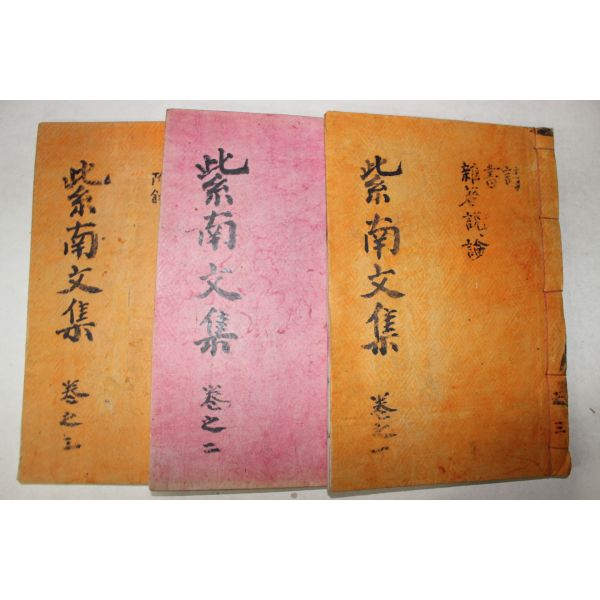 紫南文集
卷之一
詩
書
雜著說論
紫南文集
卷之二
紫南文集
卷之三
附錄